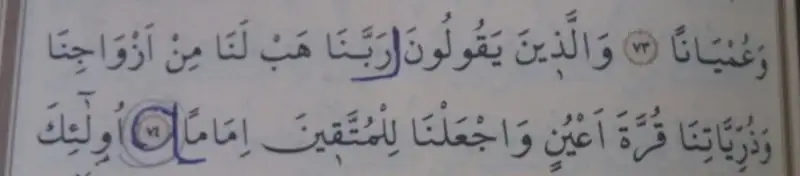 وَعُمْيَانًا ﴿٧٣﴾ وَالَّذ۪ينَ يَقُولُونَ رَبَّنَا هَبْ لَنَا مِنْ اَزْوَاجِنَا
وَذُرِّيَّاتِنَا قُرَّةَ اَعْيُنٍ وَاجْعَلْنَا لِلْمُتَّق۪ينَ اِمَامًا ﴿٧٤﴾ اُو۬لٰٓئِكَ